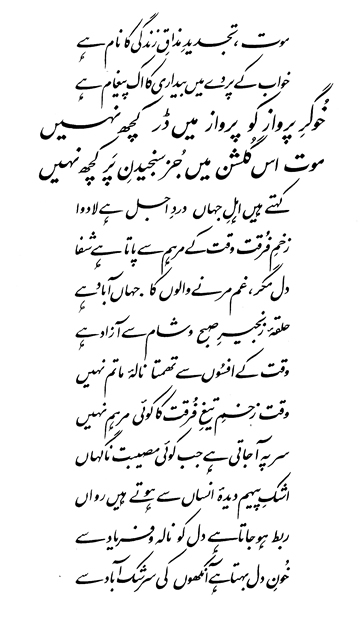 موت، تجدیدِ مذاقِ زندگی کا نام ہے
خواب کے پردے میں بیداری کا اک پیغام ہے
خُوگرِ پرواز کو پرواز میں ڈر کچھ نہیں
موت اس گُلشن میں جُز سنجیدنِ پَر کچھ نہیں
کہتے ہیں اہلِ جہاں دردِ اجل ہے لادوا
زخمِ فُرقت وقت کے مرہم سے پاتا ہے شفا
دل مگر، غم مرنے والوں کا جہاں آباد ہے
حلقۂ زنجیرِ صبح و شام سے آزاد ہے
وقت کے افسُوں سے تھمتا نالۂ ماتم نہیں
وقت زخمِ تیغِ فُرقت کا کوئی مرہم نہیں
سر پہ آجاتی ہے جب کوئی مصیبت ناگہاں
اشکِ پیہم دیدۂ انساں سے ہوتے ہیں رواں
ربط ہو جاتا ہے دل کو نالہ و فریاد سے
خُونِ دل بہتا ہے آنکھوں کی سرشک آباد سے